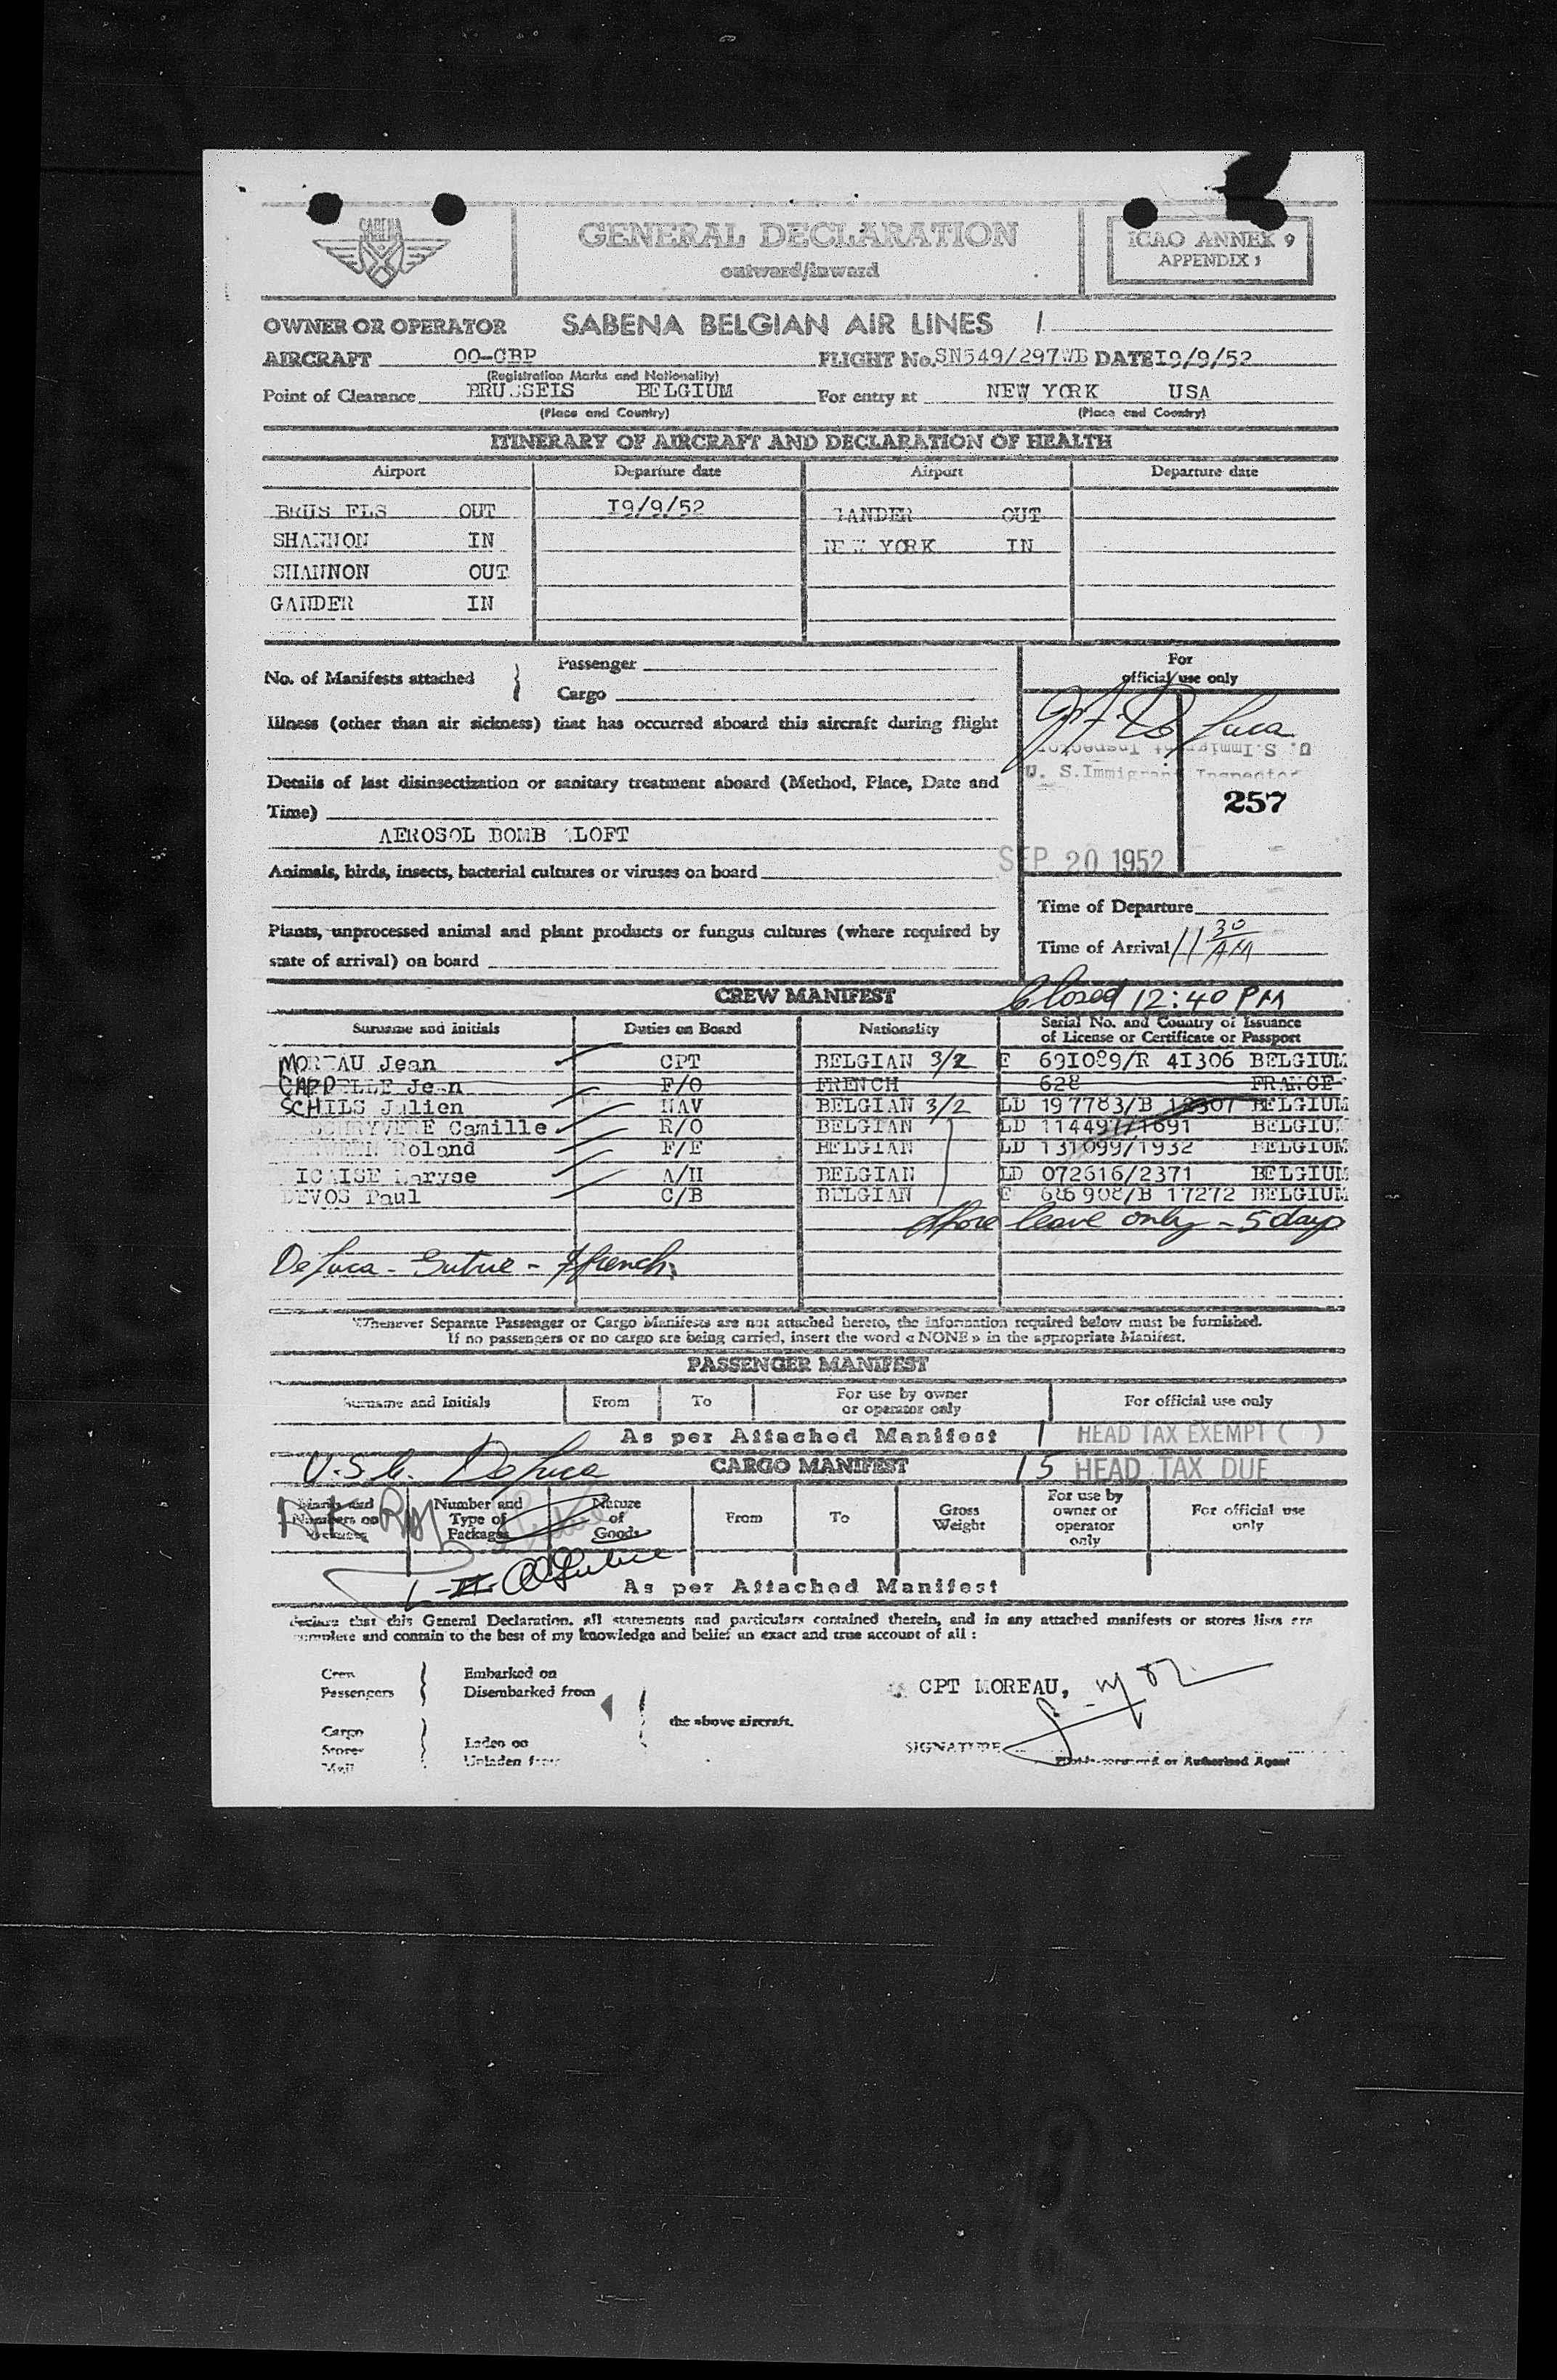 SABENA
GENERAL DECLARATION
outward/inward
ICAO ANNEX 9
APPENDIX 1
OWNER OR OPERATOR SABENA BELGIAN AIR LINES 1
AIRCRAFT OO-CBP FLIGHT No. SN549/297WB DATE I9/9/52
(Registration Marks and Nationality)
Point of Clearence BRUSSEIS BELGIUM For entry at NEW YORK USA
(Place and Country) (Place and Country)
ITINERARY OF AIRCRAFT AND DECLARATION OF HEALTH
Airport Departure date Airport Departure date
BRUS ELS OUT I9/9/52 GANDER OUT
SHANNON IN NEW YORK IN
SHANNON OUT
GANDER IN
No. of Manifests attached } Passenger
Cargo
For
official use only
Illness (other than air sickness) that has occurred aboard this aircraft during flight
De Luca
U. S. Immigrant Inspector
U. S. Immigrant Inspector
Details of last disinsectization or sanitary treatment aboard (Method, Place, Date and
Time)
257
AEROSOL BOMB LOFT
SEP 20 1952
Animals, birds, insects, bacterial cultures or viruses on board
Time of Departure
Plants, unprocessed animal and plant products or fungus cultures (where required by
state of arrival) on board
Time of Arrival 11 30 AM
CREW MANIFEST Closed 12:40 PM
Surname and initials Duties on Board Nationality Serial No. and Country of Issuance
of License or Certificate or Passport
MOREAU Jean CPT BELGIAN 3/2 E 691089/R 41306 BELGIUM
CAPPELLE Jean F/O FRENCH 628 FRANCE
SCHILS Julien NAV BELGIAN 3/2 LD 197783/B 12307 BELGIUM
SCHRYVERE Camille R/O BELGIAN LD 114497/1691 BELGIUM
Roland F/E BELGIAN LD 131099/1932 BELGIUM
ICAISE Maryse A/H BELGIAN LD 072616/2371 BELGIUM
DEVOS Paul C/B BELGIAN E 686908/B 17272 BELGIUM
shore leave only - 5 days
De Luca - Sutue - French
Whenever Separate Passenger or Cargo Manifests are not attached hereto, the information required below must be furnished.
If no passengers or no cargo are being carried, insert the word « NONE » in the appropriate Manifest.
PASSENGER MANIFEST
Surname and Initials From To For use by owner
or operator only For official use only
As per Attached Manifest 1 HEAD TAX EXEMPT ( )
U.S.C. De Luca CARGO MANIFEST 15 HEAD TAX DUE
Marks and
Numbers on
Packages Number and
Type of
Packages Nature
of
Goods From To Gross
Weight For use by
owner or
operator
only For official use
only
As per Attached Manifest
declare that this General Declaration, all statements and particulars contained therein, and in any attached manifests or stores lists are
complete and contain to the best of my knowledge and belief an exact and true account of all :
Crew Embarked on
Passengers Disembarked from
CPT MOREAU,
the above aircraft.
Cargo
Stores Laden on
Mail Unladen from
SIGNATURE
Pilot-in-command or Authorised Agent